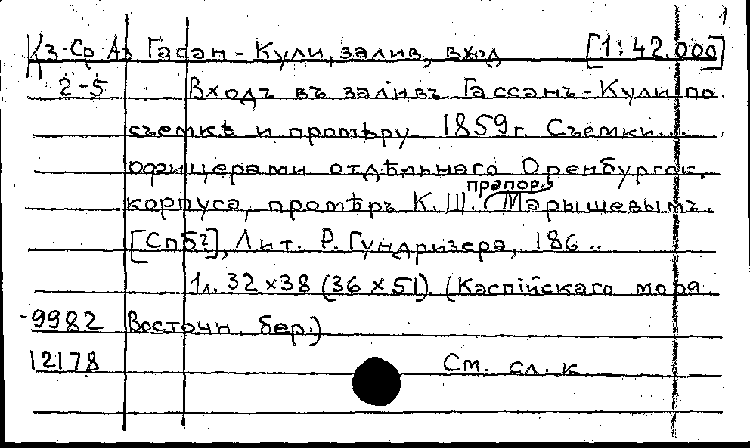 1
Кз-Ср Аз Гасан-Кули, залив, вход [1:42.000]
2-5 Входъ въ заливъ Гассанъ-Кули по
съемкѣ и промѣру 1859 г. Съемки...
офицерами отдѣльнаго Оренбургск.
прапор.
корпуса, промѣръ К. Ш. Марышевымъ.
[Спб?], Лит. Р. Гундризера, 186..
1 л. 32×38 (36×51) (Каспійскаго моря
-9982 Восточн. бер.)
12178 См. сл. к.